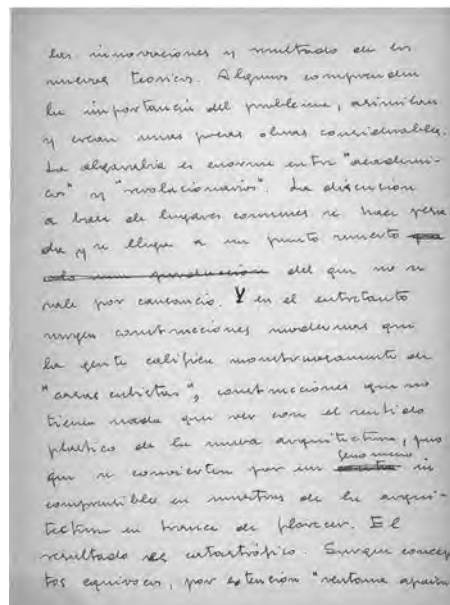 las innovaciones y resultado de las
nuevas teorías. Algunos comprenden
la importancia del problema, asimilan
y crean unas pocas obras considerables.
La algarabía es enorme entre "academi-
cos" y "revolucionarios". La discusión
a base de lugares comunes se hace pesa
da y se llega a un punto muerto
del que no se
sale por cansancio. Y en el entretanto
surgen construcciones modernas que
la gente califica monstruosamente de
"casas cubistas", construcciones que no
tienen nada que ver con el sentido
plastico de la nueva arquitectura, pero
que se convierten por un fenomeno in
comprensible en muestras de la arqui-
tectura en trance de florecer. El
resultado es catastrófico. Surgen concep
tos equivocos, por extención "ventana apaisa